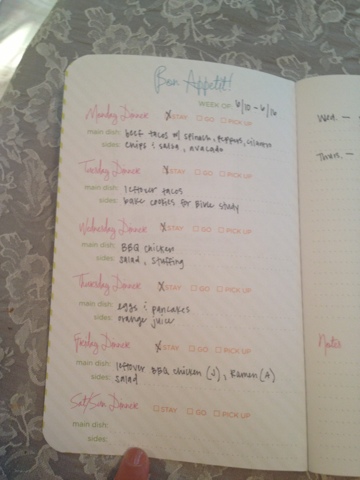 Bon Appetit!
WEEK OF: 6/10 - 6/16
Monday Dinner X STAY GO PICK UP
main dish: beef tacos w/ spinach, peppers, cilantro
sides: chips & salsa, avocado
Tuesday Dinner X STAY GO PICK UP
main dish: leftover tacos
sides: bake cookies for Bible study
Wednesday Dinner X STAY GO PICK UP
main dish: BBQ chicken
sides: salad, stuffing
Thursday Dinner X STAY GO PICK UP
main dish: eggs & pancakes
sides: orange juice
Friday Dinner X STAY GO PICK UP
main dish: leftover BBQ chicken (J), Ramen (A)
sides: salad
Sat/Sun Dinner STAY GO PICK UP
main dish:
sides:
Wed. -
Thurs. -
Notes